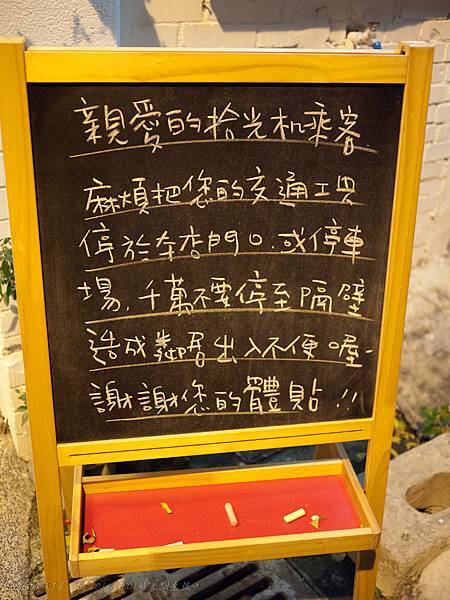 親愛的拾光机乘客
麻煩把您的交通工具
停於本店門口.或停車
場,千萬不要停至隔壁
造成鄰居出入不便喔~
謝謝您的體貼!!